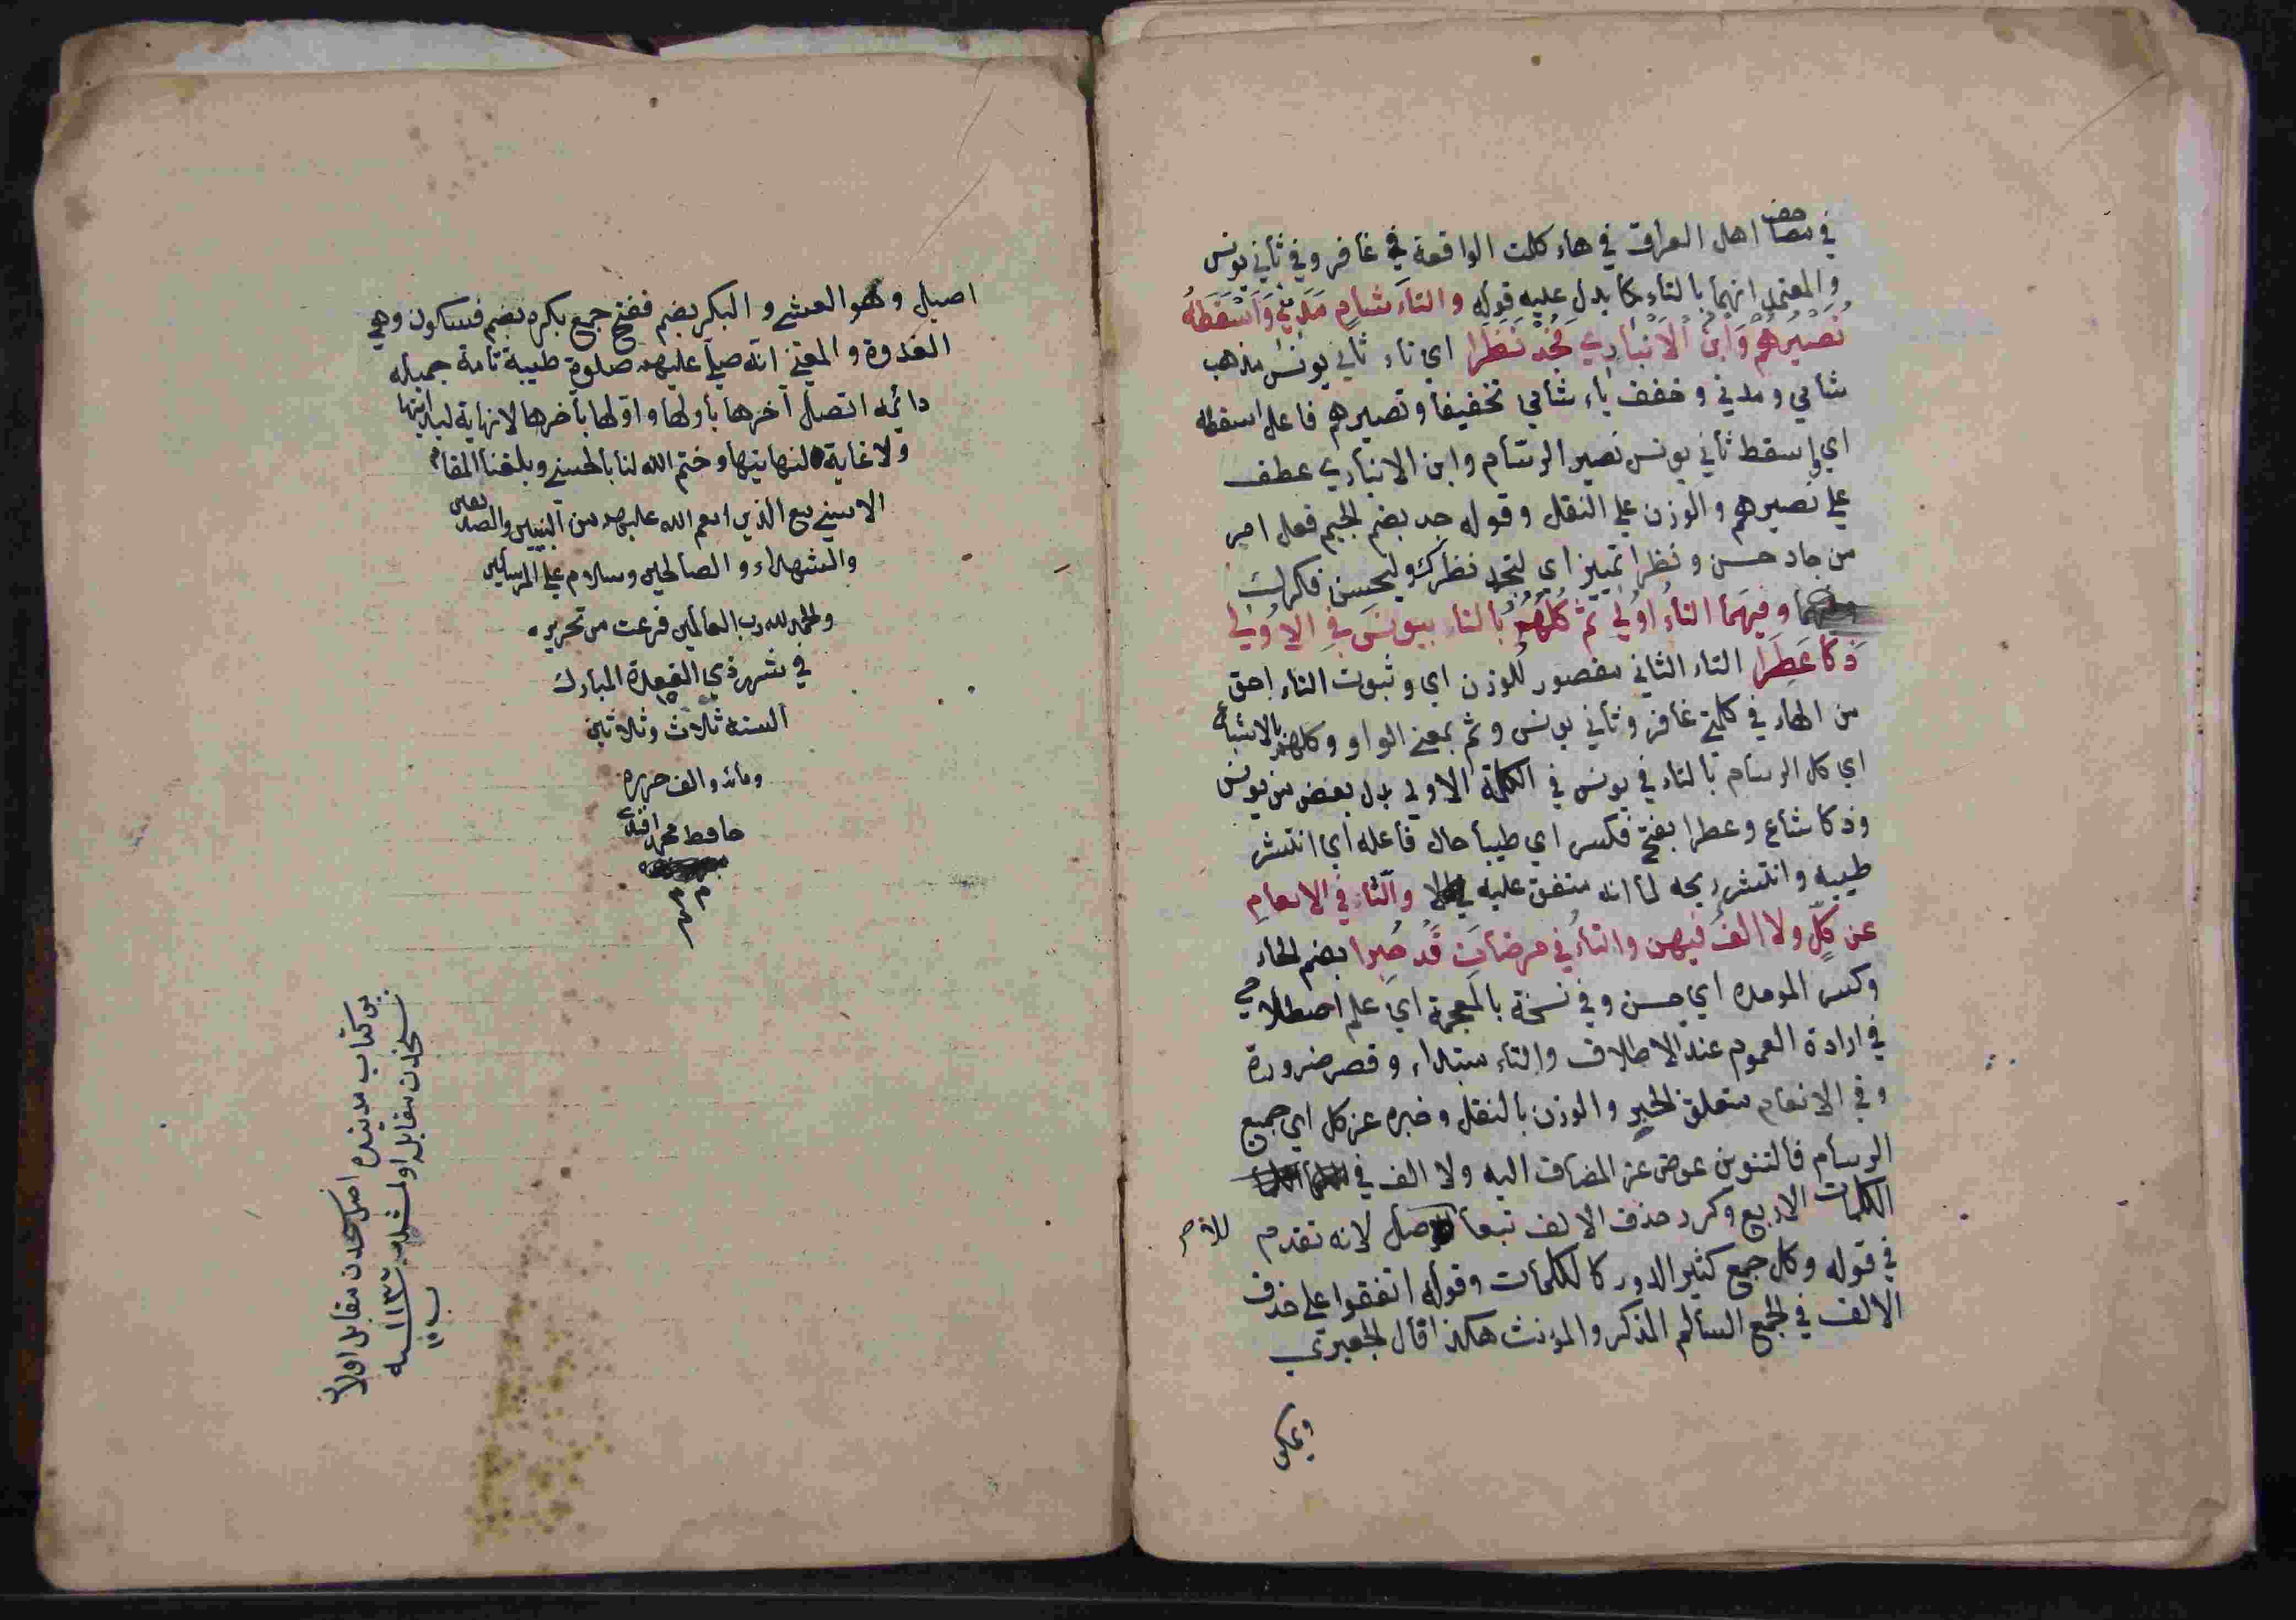 في مصاحف اهل العراق في هاء كلمت الواقعة في غافر وفي ثاني يونس
والمعتمد انهما بالتاء كما يدل عليه قوله والتاء شام مَدِيني وَاَسْقَطَهُ
نُصَيْرُهُمْ وَابنُ الاَنْبَارِي فَجُدْ نَظَرَا اي تاء ثاني يونس مذهب
شامي ومدني وخفف ياء شامي تخفيفا ونصيرهم فاعل اسقطه
اي واسقط ثاني يونس نصير الرسام وابن الانباري عطف
علي نصيرهم والوزن علي النقل وقوله جد بضم الجيم فعل امر
من جاد حسن ونظرا تمييز اي لتجد نظرك وليحسن فكرك
وفيهما التاء اَوْلي ثم كُلُّهُمُ بالتاء بيونس في الاُوْلي
ذكا عَطِرَا التاء الثاني مقصور للوزن اي وثبوت التاء احق
من الهاء في كلمتي غافر وثاني يونس وثم بمعني الواو وكلهم بالاشباع
اي كل الرسام بالتاء في يونس في الكلمة الاولي بدل بعض من يونس
وذكا شاع وعطرا بفتح فكسر اي طيبا حال فاعله اي انتشر
طيبه وانتشر ريحه لما انه متفق عليه والتاء في الانعامِ
عن كلٍّ ولا الفٌ فيهن والتاءُ في مرضاتِ قَد حُبِرا بضم الحاء
وكسر الموحدة اي حسن وفي نسخة بالمعجمة اي علم اصطلاحي
في ارادة العموم عند الاطلاق والتاء مبتداء وقصر ضرورة
وفي الانعام متعلق الخبر والوزن بالنقل وخبره عن كل اي جميع
الرسام فالتنوين عوض عن المضاف اليه ولا الف في
الكلمات الاربع وكرر حذف الالف تبعا للاصل لانه تقدم
في قوله وكل جمع كثير الدور كالكلمات وقوله اتفقوا علي حذف
الالف في الجمع السالم المذكر والمؤنث هكذا قال الجعبري
اصيل وهو العشي والبكر بضم ففتح جمع بكره بضم فسكون وهي
الغدوة والمعني انه صلي عليهم صلوة طيبة تامة جميله
دائمه اتصل آخرها باولها واولها بآخرها لا نهاية لبدايتها
ولا غاية لنهايتها وختم الله لنا بالحسني وبلغنا المقام
الاسني مع الذين انعم الله عليهم من النبيين والصديقين
والشهداء والصالحين وسلام علي المرسلين
والحمد لله رب العالمين فرغت من تحريره
في شهر ذي القعدة المبارك
السنه ثلاث وثلاثين
ومائه والف حرره
حافظ محمد افندي
بو كتاب مدينده اصل نسخه‌دن مقابل اولان
نسخه‌دن مقابل اولنمشدر سنه ١١٣٤